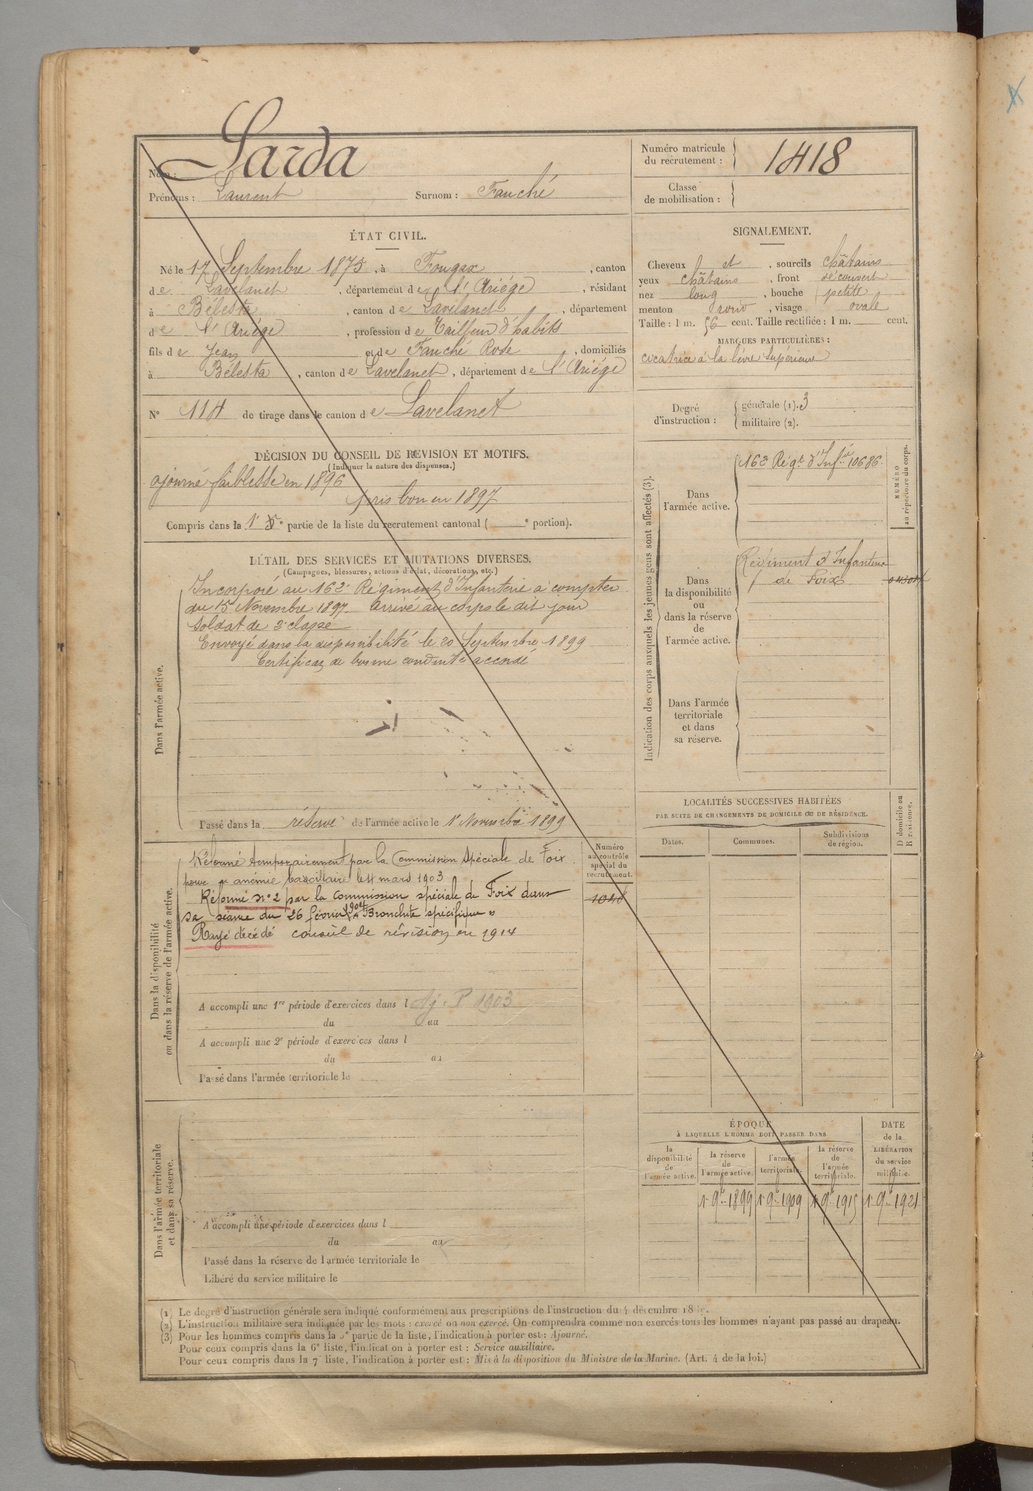 Nom : Sarda
Prénoms : Laurent Surnom : Fauché
Numéro matricule
du recrutement : 1418
Classe
de mobilisation :
ÉTAT CIVIL.
Né le 17 Septembre 1875, à Fougax, canton
de Lavelanet, département de l'Ariége, résidant
à Bélesta, canton de Lavelanet, département
de l'Ariége, profession de Tailleur d'habits
fils de Jean et de Fauché Rose, domiciliés
à Bélesta, canton de Lavelanet, département de l'Ariége
N° 114 de tirage dans le canton de Lavelanet
DÉCISION DU CONSEIL DE REVISION ET MOTIFS.
(Indiquer la nature des dispenses.)
ajourné faiblesse en 1896
pris bon en 1897
Compris dans la 1e partie de la liste du recrutement cantonal ( e portion).
SIGNALEMENT.
Cheveux et, sourcils châtains
yeux châtains, front découvert
nez long, bouche petite
menton rond, visage ovale
Taille : 1 m. 56 cent. Taille rectifiée : 1 m. cent.
MARQUES PARTICULIÈRES :
cicatrice à la lèvre supérieure
Degré
d'instruction :
générale (1). 3
militaire (2).
DÉTAIL DES SERVICES ET MUTATIONS DIVERSES.
(Campagnes, blessures, actions d'éclat, décorations, etc.)
Dans l'armée active.
Incorporé au 163e Régiment d'Infanterie à compter
du 15 Novembre 1897. Arrivé au corps le dit jour
Soldat de 2e classe
Envoyé dans la disponibilité le 20 Septembre 1899
Certificat de bonne conduite accordé
Passé dans la réserve de l'armée active le 1er Novembre 1899
Indication des corps auxquels les jeunes gens sont affectés (3).
NUMÉRO
au répertoire du corps.
Dans
l'armée active.
163e Régt d'Infie 10686
Dans
la disponibilité
ou
dans la réserve
de
l'armée active.
Régiment d'Infanterie
de Foix
Dans l'armée
territoriale
et dans
sa réserve.
LOCALITÉS SUCCESSIVES HABITÉES
PAR SUITE DE CHANGEMENTS DE DOMICILE OU DE RÉSIDENCE.
Dates.
Communes.
Subdivisions
de région.
D domicile ou
R résidence.
Dans la disponibilité
ou dans la réserve de l'armée active.
Numéro
au contrôle
spécial du
recrutement.
Réformé temporairement par la Commission Spéciale de Foix
pour anémie bacillaire le 11 mars 1903
Réformé n° 2 par la commission spéciale de Foix dans
sa séance du 26 février 1904 "Bronchite spécifique"
Rayé décédé conseil de révision en 1914
A accompli une 1re période d'exercices dans l Aj. P 1903
du au
A accompli une 2e période d'exercices dans l
du au
Passé dans l'armée territoriale le
Dans l'armée territoriale
et dans sa réserve.
A accompli une période d'exercices dans l
du au
Passé dans la réserve de l'armée territoriale le
Libéré du service militaire le
ÉPOQUE
À LAQUELLE L'HOMME DOIT PASSER DANS
la
disponibilité
de
l'armée active.
la réserve
de
l'armée active.
l'armée
territoriale.
la réserve
de
l'armée
territoriale.
DATE
de la
LIBÉRATION
du service
militaire.
1er 9bre 1899 1er 9bre 1909 1er 9bre 1915 1er 9bre 1921
(1) Le degré d'instruction générale sera indiqué conformément aux prescriptions de l'instruction du 4 décembre
(2) L'instruction militaire sera indiquée par les mots : exercé ou non exercé. On comprendra comme non exercés tous les hommes n'ayant pas passé au drapeau.
(3) Pour les hommes compris dans la partie de la liste, l'indication à porter est : Ajourné.
Pour ceux compris dans la 6e liste, l'indication à porter est : Service auxiliaire.
Pour ceux compris dans la 7 liste, l'indication à porter est : Mis à la disposition du Ministre de la Marine. (Art. 4 de la loi.)